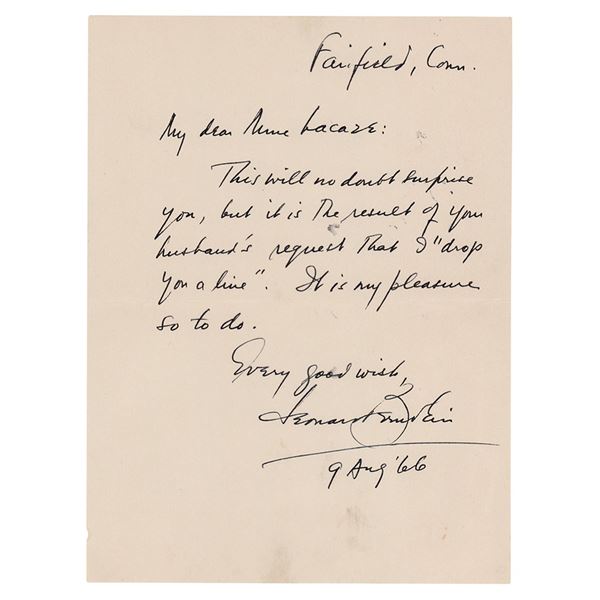 Fairfield, Conn.
My dear Mme Lacaze:
This will no doubt surprise
you, but it is the result of your
husband's request that I "drop
you a line". It is my pleasure
so to do.
Every good wish,
Leonard Bernstein
9 Aug '66